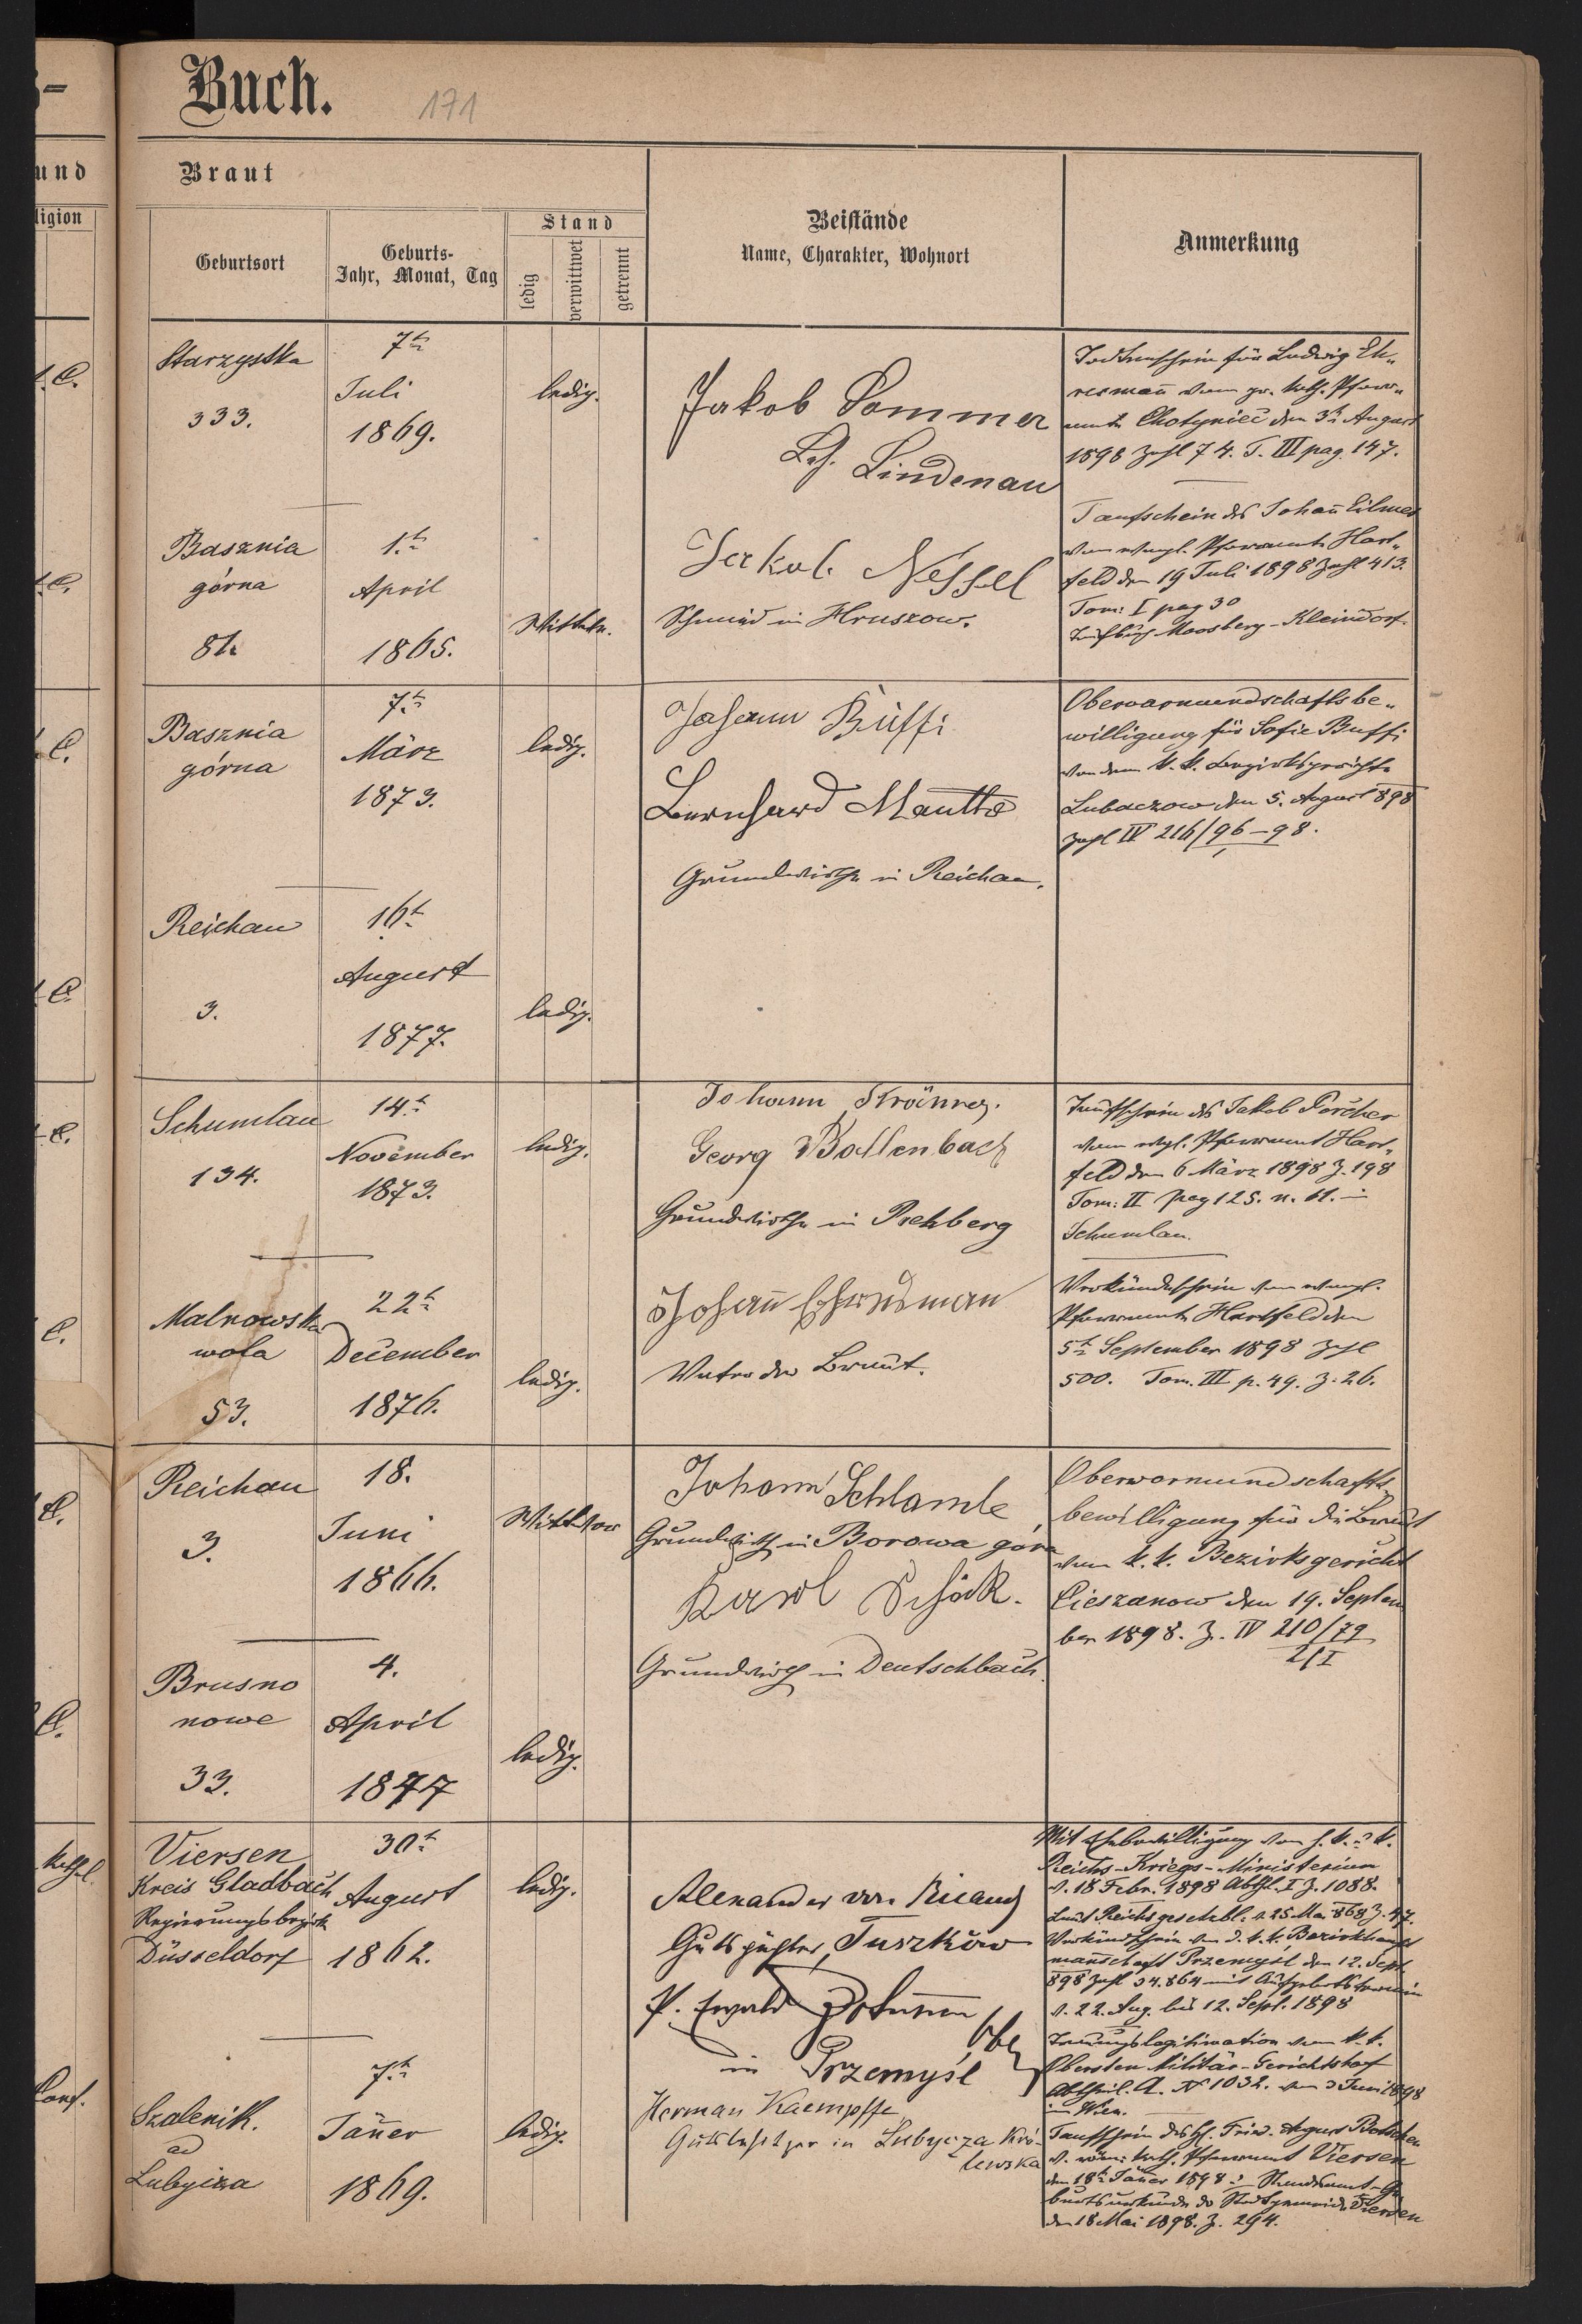 -
und
ligion
Buch.
171
Braut
Geburtsort
Geburts-
Jahr, Monat, Tag
Stand
ledig
verwittwet
getrennt
Beistände
Name, Charakter, Wohnort
Anmerkung
Starzystka
333.
7t
Juli
1869.
ledig.
Jakob Sommer
Lindenau
Todtenschein für Ludwig Eh„
resmañ vom gr. kath. Pfarr„
amte Chotyniec den 3t August
1898 Zahl 74. T. III pag. 147.
Basznia
górna
81.
1.t
April
1865.
Wittwe.
Jakob Nessel
Schmied in Hruszow.
Taufschein des Johañ Eilmes
vom evngl. Pfarramte Hart„
feld den 19 Juli 1898 Zahl 413.
Tom: I pag 30
Taufbuch Moosberg-Kleindorf.
Basznia
górna
7t
März
1873.
ledig.
Johann Buffi
Bernhard Mauthe
Grundwirthe in Reichau.
Obervormundschaftsbe„
willigung für Sofie Buffi
von dem k. k. Bezirksgerichte
Lubaczow den 5. August 898
Zahl IV 216/96-98.
Reichau
3.
16t
August
1877.
ledig.
Schumlau
134.
14.t
November
1873.
ledig.
Johann
Georg Bollenbach
Grundwirthe in Rehberg
Taufschein des Jakob Porcher
vom evgl. Pfarramt Hart„
feld den 6 März 1898 Z. 198
Tom: II pag 125. n. 61.
Schumlau.
Malnowska
wola
53.
22t
December
1876.
ledig.
Johañ
Vater der Braut.
Verkündschein vom evngl.
Pfarramte Hartfeld den
5t September 1898 Zahl
500. Tom. III p. 49. Z. 26.
Reichau
3.
18.
Juni
1866.
Wittwe
Johann Schlamle
Grundwirth in Borowa góra
Karol Schök.
Grundwirth in Deutschbach.
Obervormundschafts„
bewilligung für die Braut
vom k. k. Bezirksgericht
Cieszanow den 19. Septem
ber 1898. Z. IV 210/79
2/I
Brusno
nowe
33.
4.
April
1877
ledig.
Viersen
Kreis Gladbach
Regierungsbezirk
Düsseldorf
30t
August
1862.
ledig.
Alexander von
Gutspächter, Tuszków
P. Ewald
in Przemyśl
Mit Ehebewilligung vom h. k. u. k.
Reichs-Kriegs-Ministerium
v. 18 Febr. 1898 Abthl. I Z. 1088.
Laut Reichsgesetzbl. v. 25 Mai 868 Z. 47.
Verkündschein von d. k. k. Bezirkhaupt
mañschaft Przemyśl den 12. Sept.
898 Zahl 34.864 mit Aufgebotstermin
v. 22. Aug. bis 12. Sept. 1898
Trauungslegitimation vom k. k.
Obersten Militär-Gerichtshof
Abtheil. A. N 1032. vom 3 Juni 1898
in Wien.
Szalenik.
ad
Lubycza
7t
Jäñer
1869.
ledig.
Herman Kaempffe
Gutsbesitzer in Lubycza Kró-
lewska
Taufschein des H. Fried. August
v. röm. kath. Pfarramt Viersen
den 18t Jäñer 1898 Standesamt-Ge
burtsurkunde der Stadtgemeinde Viersen
den 18 Mai 1898. Z. 294.